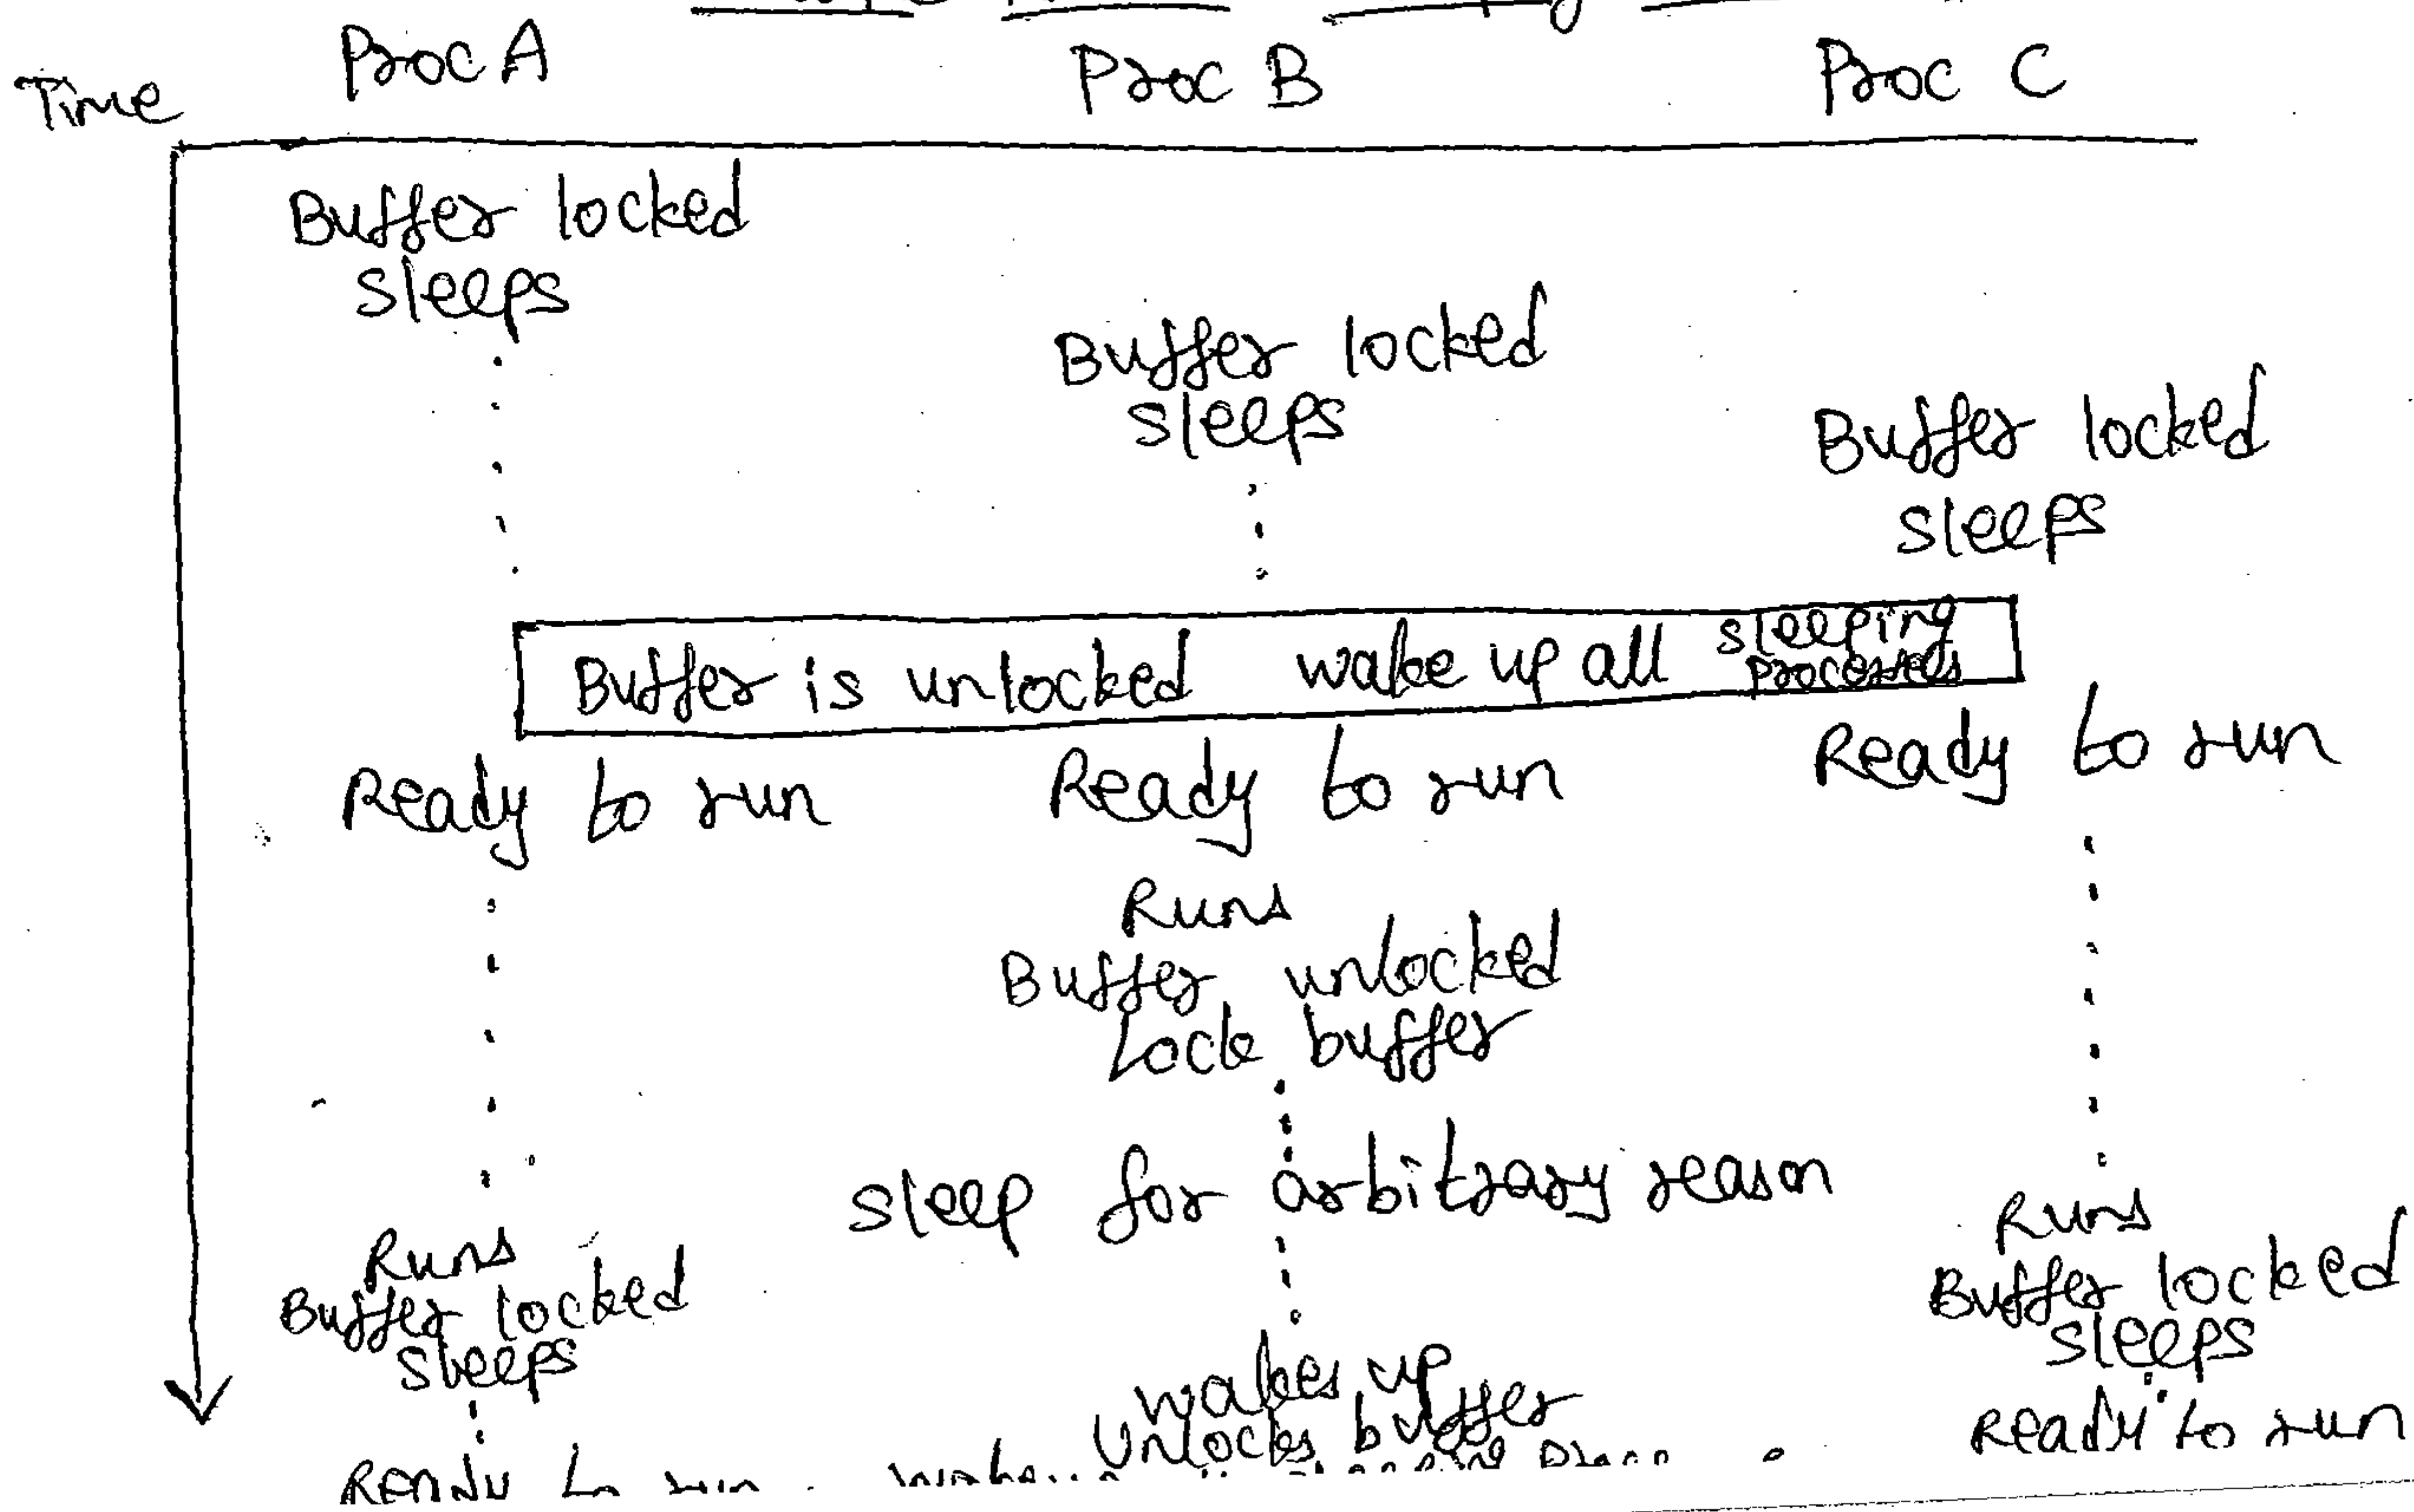 Proc A Proc B Proc C
Time
Buffer locked
sleeps
Buffer locked
sleeps
Buffer locked
sleeps
Buffer is unlocked wake up all sleeping processes
Ready to run Ready to run Ready to run
Runs
Buffer unlocked
Lock buffer
sleep for arbitrary reason
Runs
Buffer locked
sleeps
Runs
Buffer locked
sleeps
wakes up
Unlocks buffer
Ready to run
Ready to run